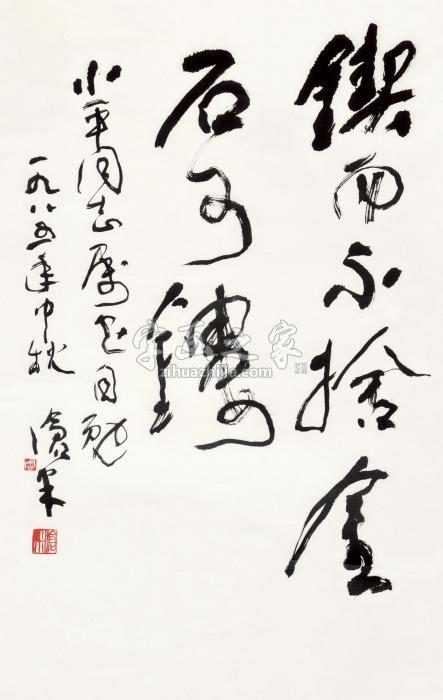 鍥而不捨金
石可鏤
小平同志属书自勉
一九八五年中秋
字画之家
zihuazhijia.com